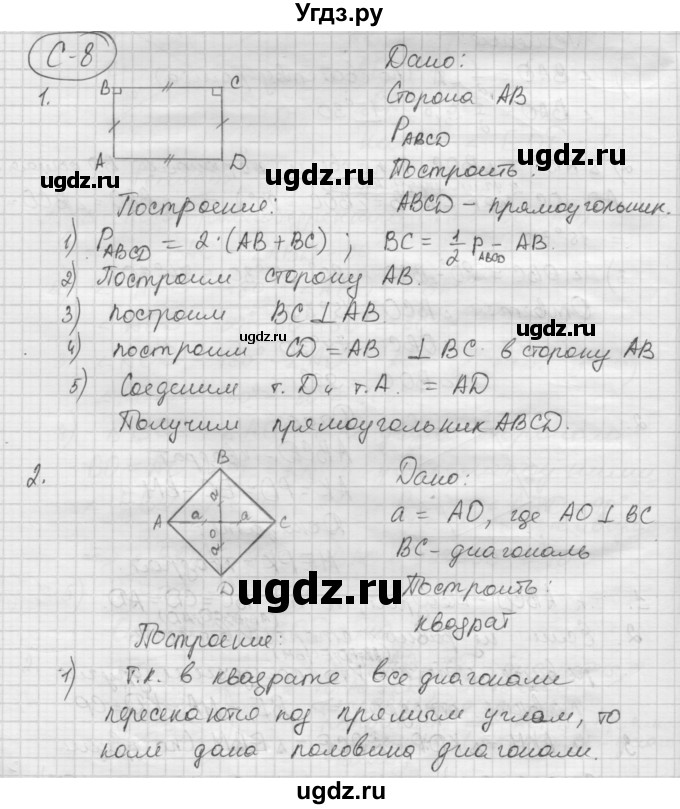 Угдз.ру
С-8
1.
B C
A D
Дано:
Сторона AB
P_ABCD
Построить:
ABCD – прямоугольник.
Построение:
1) P_ABCD = 2·(AB+BC); BC = 1/2 P_ABCD – AB.
2) Построим сторону AB.
3) построим BC ⊥ AB
4) построим CD = AB ⊥ BC в сторону AB
5) Соединим т. D и т. A. = AD
Получим прямоугольник ABCD.
2.
B
A a O a C
a
a
D
Дано:
a = AO, где AO ⊥ BC
BC – диагональ
Построить:
квадрат
Построение:
1) т.к. в квадрате все диагонали
пересекаются под прямым углом, то
нам дана половина диагонали.
ugdz.ru
ugdz.ru
ugdz.ru
ugdz.ru
ugdz.ru
ugdz.ru
ugdz.ru
ugdz.ru
ugdz.ru
ugdz.ru
ugdz.ru
ugdz.ru